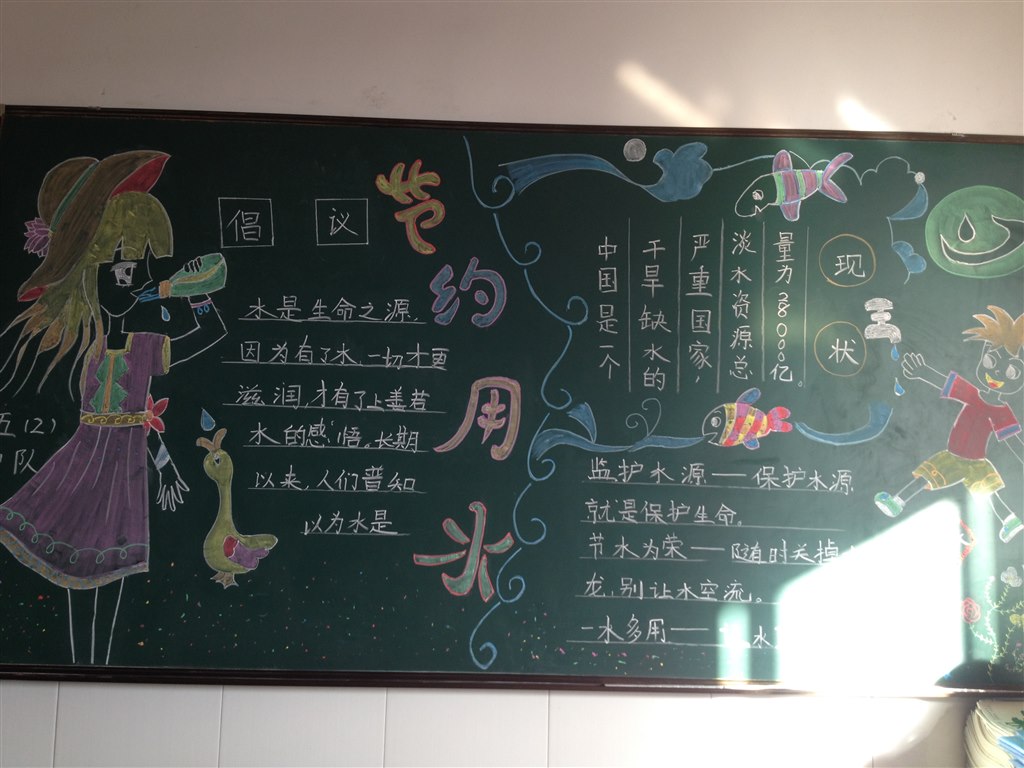 五(2)
队
倡议
节约用水
水是生命之源,
因为有了水,一切才更
滋润,才有了上善若
水的感悟。长期
以来,人们普知
以为水是
现状
量为28000亿。
淡水资源总
严重国家,
干旱缺水的
中国是一个
监护水源——保护水源
就是保护生命。
节水为荣——随时关掉
龙,别让水空流。
一水多用——水